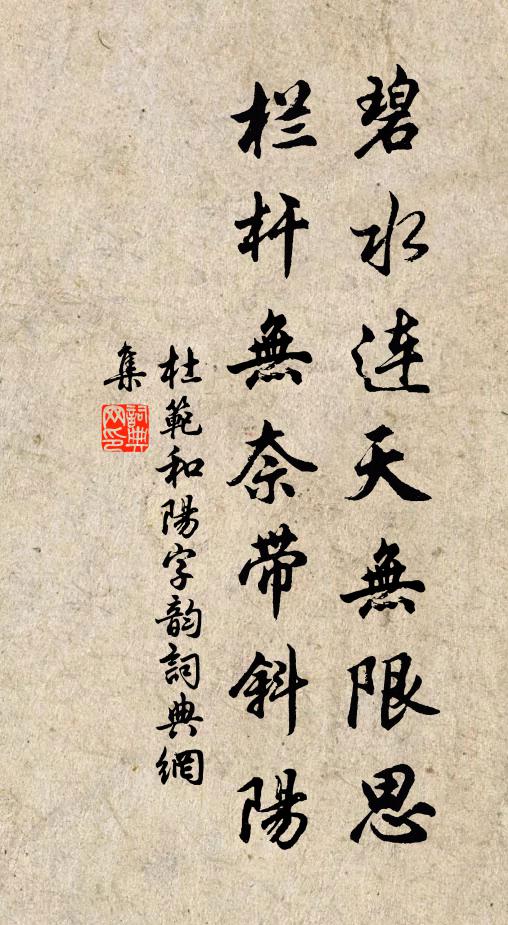 碧水连天無限思
栏杆無奈带斜陽
杜範和陽字韵詞典網
集
詞典
网印